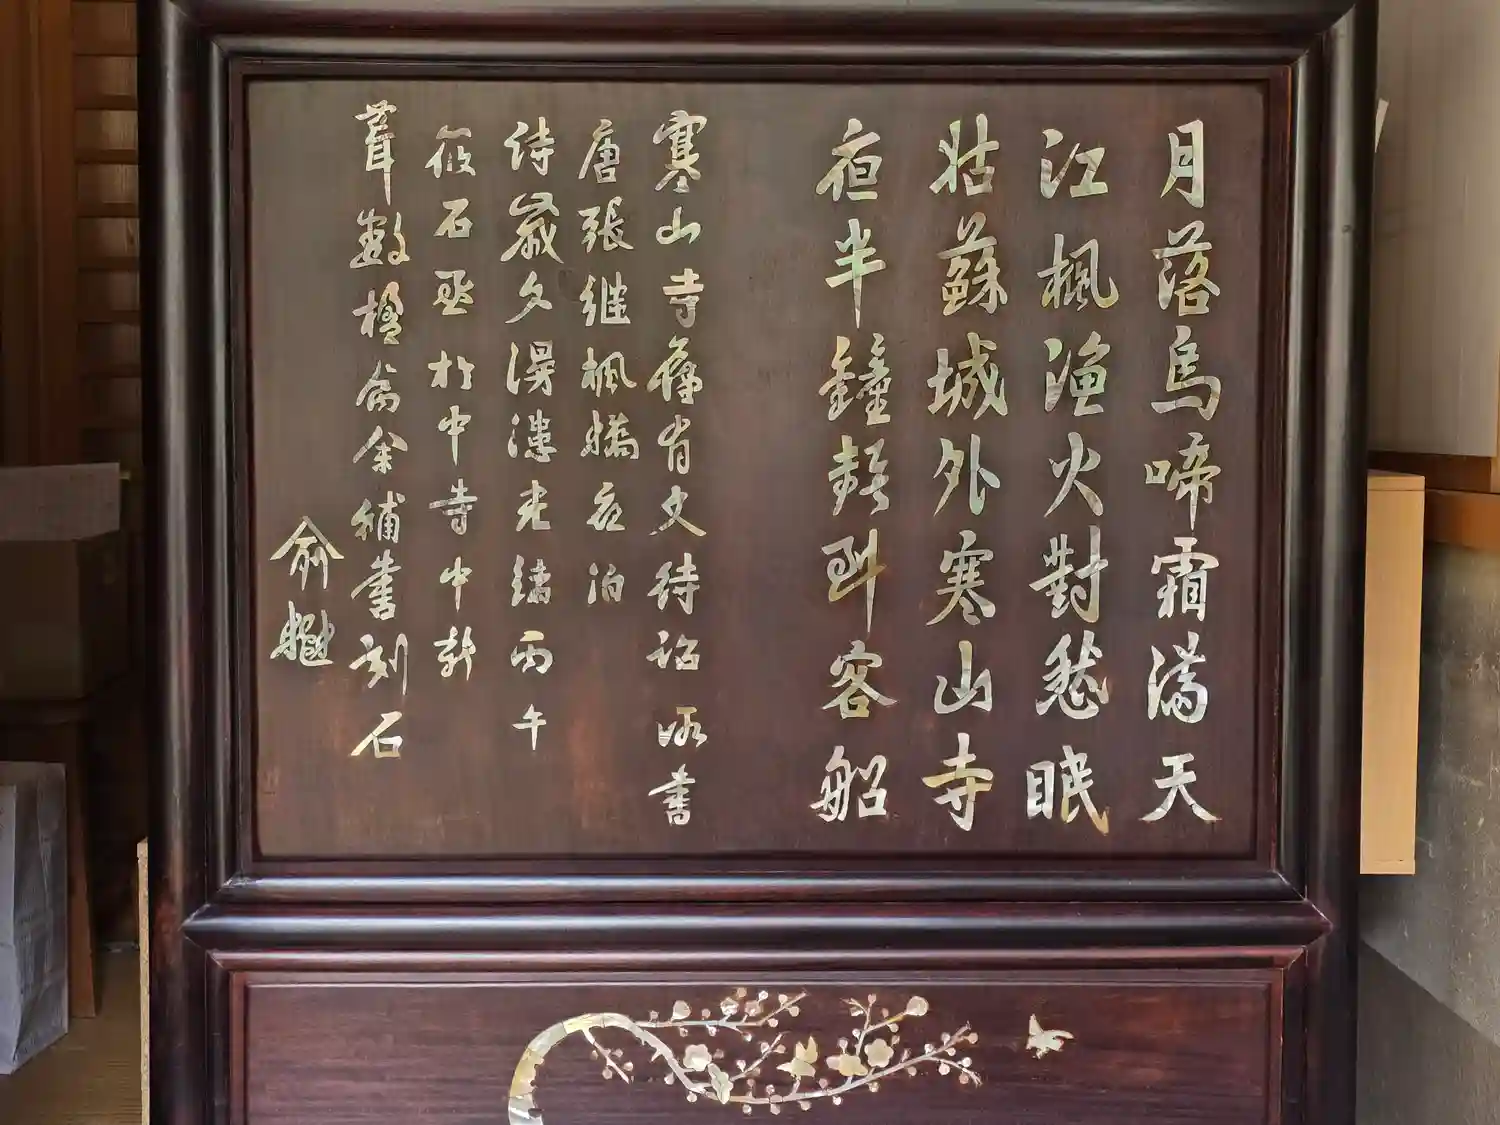 月落烏啼霜滿天
江楓漁火對愁眠
姑蘇城外寒山寺
夜半鐘聲到客船
寒山寺舊有文待詔所書
唐張继楓橋夜泊
詩歲久漫漶光緒丙午
筱石丞於中寺中新
葺數楹屬余補書刻石
俞樾